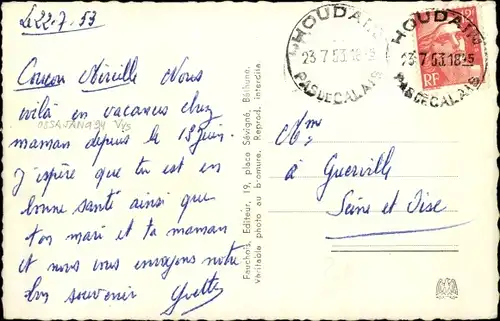 Le 22.7.53
Coucou Mireille Nous
voilà en vacances chez
maman depuis le 13 juin.
J'espère que tu est en
bonne santé ainsi que
ton mari et ta maman
et nous vous envoyons notre
bon souvenir Yvette
Fauchois, Editeur, 19, place Sévigné, Béthune.
Véritable photo au bromure. Reprod. interdite
HOUDAIN
23-7 53.18-5
PAS DE CALAIS
HOUDAIN
23-7 53.18-5
PAS DE CALAIS
RF
à Guerville
Seine et Oise